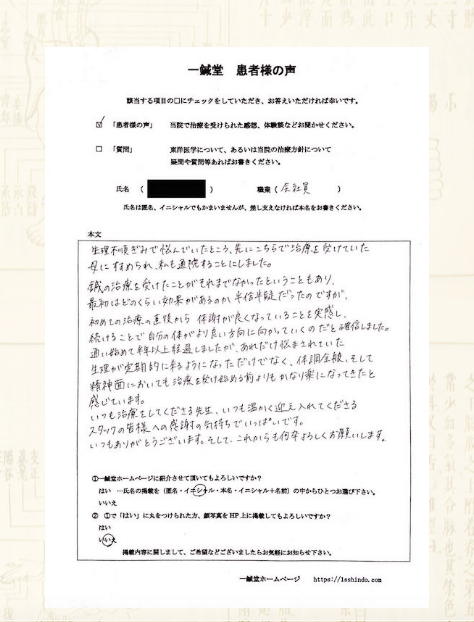 一鍼堂 患者様の声
該当する項目の□にチェックをしていただき、お答えいただければ幸いです。
☑ 「患者様の声」 当院で治療を受けられた感想、体験談などお聞かせください。
□ 「質問」 東洋医学について、あるいは当院の治療方針について
疑問や質問等あればお書きください。
氏名 ( ) 職業 ( 会社員 )
氏名は匿名、イニシャルでもかまいませんが、差し支えなければ本名をお書きください。
本文
生理不順ぎみで悩んでいたところ、先にこちらで治療を受けていた
母にすすめられ、私も通院することにしました。
鍼の治療を受けたことがそれまでなかったということもあり、
最初はどのくらい効果があるのか、半信半疑だったのですが、
初めての治療の直後から 体調が良くなっていることを実感し、
続けることで自分の体がより良い方向に向かっていくのだと確信しました。
通い始めて半年以上経過しましたが、あれだけ悩まされていた
生理が定期的に来るようになっただけでなく、体調全般、そして
精神面においても治療を受け始める前よりもかなり楽になってきたと
感じています。
いつも治療をしてくださる先生、いつも温かく迎え入れてくださる
スタッフの皆様への感謝の気持ちでいっぱいです。
いつもありがとうございます。そして、これからも何卒よろしくお願いします。
①一鍼堂ホームページに紹介させて頂いてもよろしいですか?
はい …氏名の掲載を (匿名・イニシャル・本名・イニシャル+名前) の中からひとつお選び下さい。
いいえ
② ①で「はい」に丸をつけられた方、顔写真をHP上に掲載してもよろしいですか?
はい
いいえ
掲載内容に関しまして、ご希望などございましたらお気軽にお知らせ下さい。
一鍼堂ホームページ https://1sshindo.com